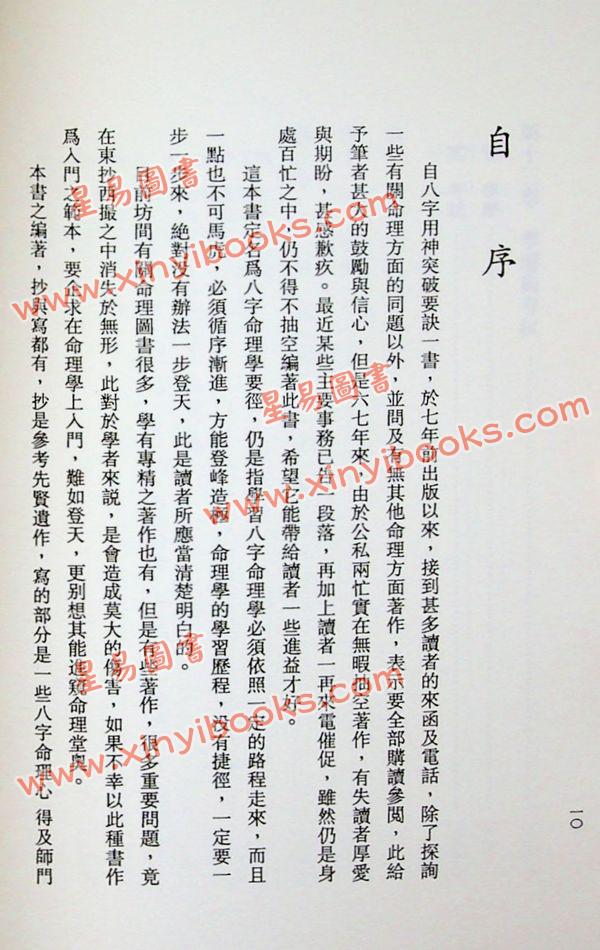 自序
自八字用神突破要訣一書，於七年前出版以來，接到甚多讀者的來函及電話，除了探詢
一些有關命理方面的同題以外，並問及有無其他命理方面著作，表示要全部購讀參閱，此給
予筆者甚大的鼓勵與信心，但是六七年來，由於公私兩忙實在無暇抽空著作，有失讀者厚愛
與期盼，甚感歉疚。最近某些主要事務已告一段落，再加上讀者一再來電催促，雖然仍是身
處百忙之中，仍不得不抽空編著此書，希望它能帶給讀者一些進益才好。
這本書定名爲八字命理學要徑，仍是指學習八字命理學必須依照一定的路程走來，而且
一點也不可馬虎，必須循序漸進，方能登峰造極，命理學的學習歷程，沒有捷徑，一定要一
步一步來，絕對没有辦法一步登天，此是讀者所應當清楚明白的。
目前坊間有關命理圖書很多，學有專精之著作也有，但是有些著作，很多重要問題，竟
在東抄西撮之中消失於無形，此對於學者來説，是會造成莫大的傷害，如果不幸以此種書作
爲入門之範本，要企求在命理學上入門，難如登天，更别想其能進窺命理堂奥。
本書之編著，抄與寫都有，抄是參考先賢遺作，寫的部分是一些八字命理心得及師門
一〇
星易圖書
www.xinyibooks.com
星易圖書
www.xinyibooks.com
星易圖書
www.xinyibooks.com